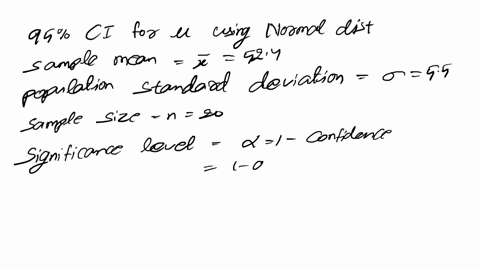 95% CI for u using Normal dist
Sample mean = x̄ = 52.4
population standard deviation = σ = 5.5
Sample size - n = 20
Significance level - α = 1 - Confidence
= 1-0